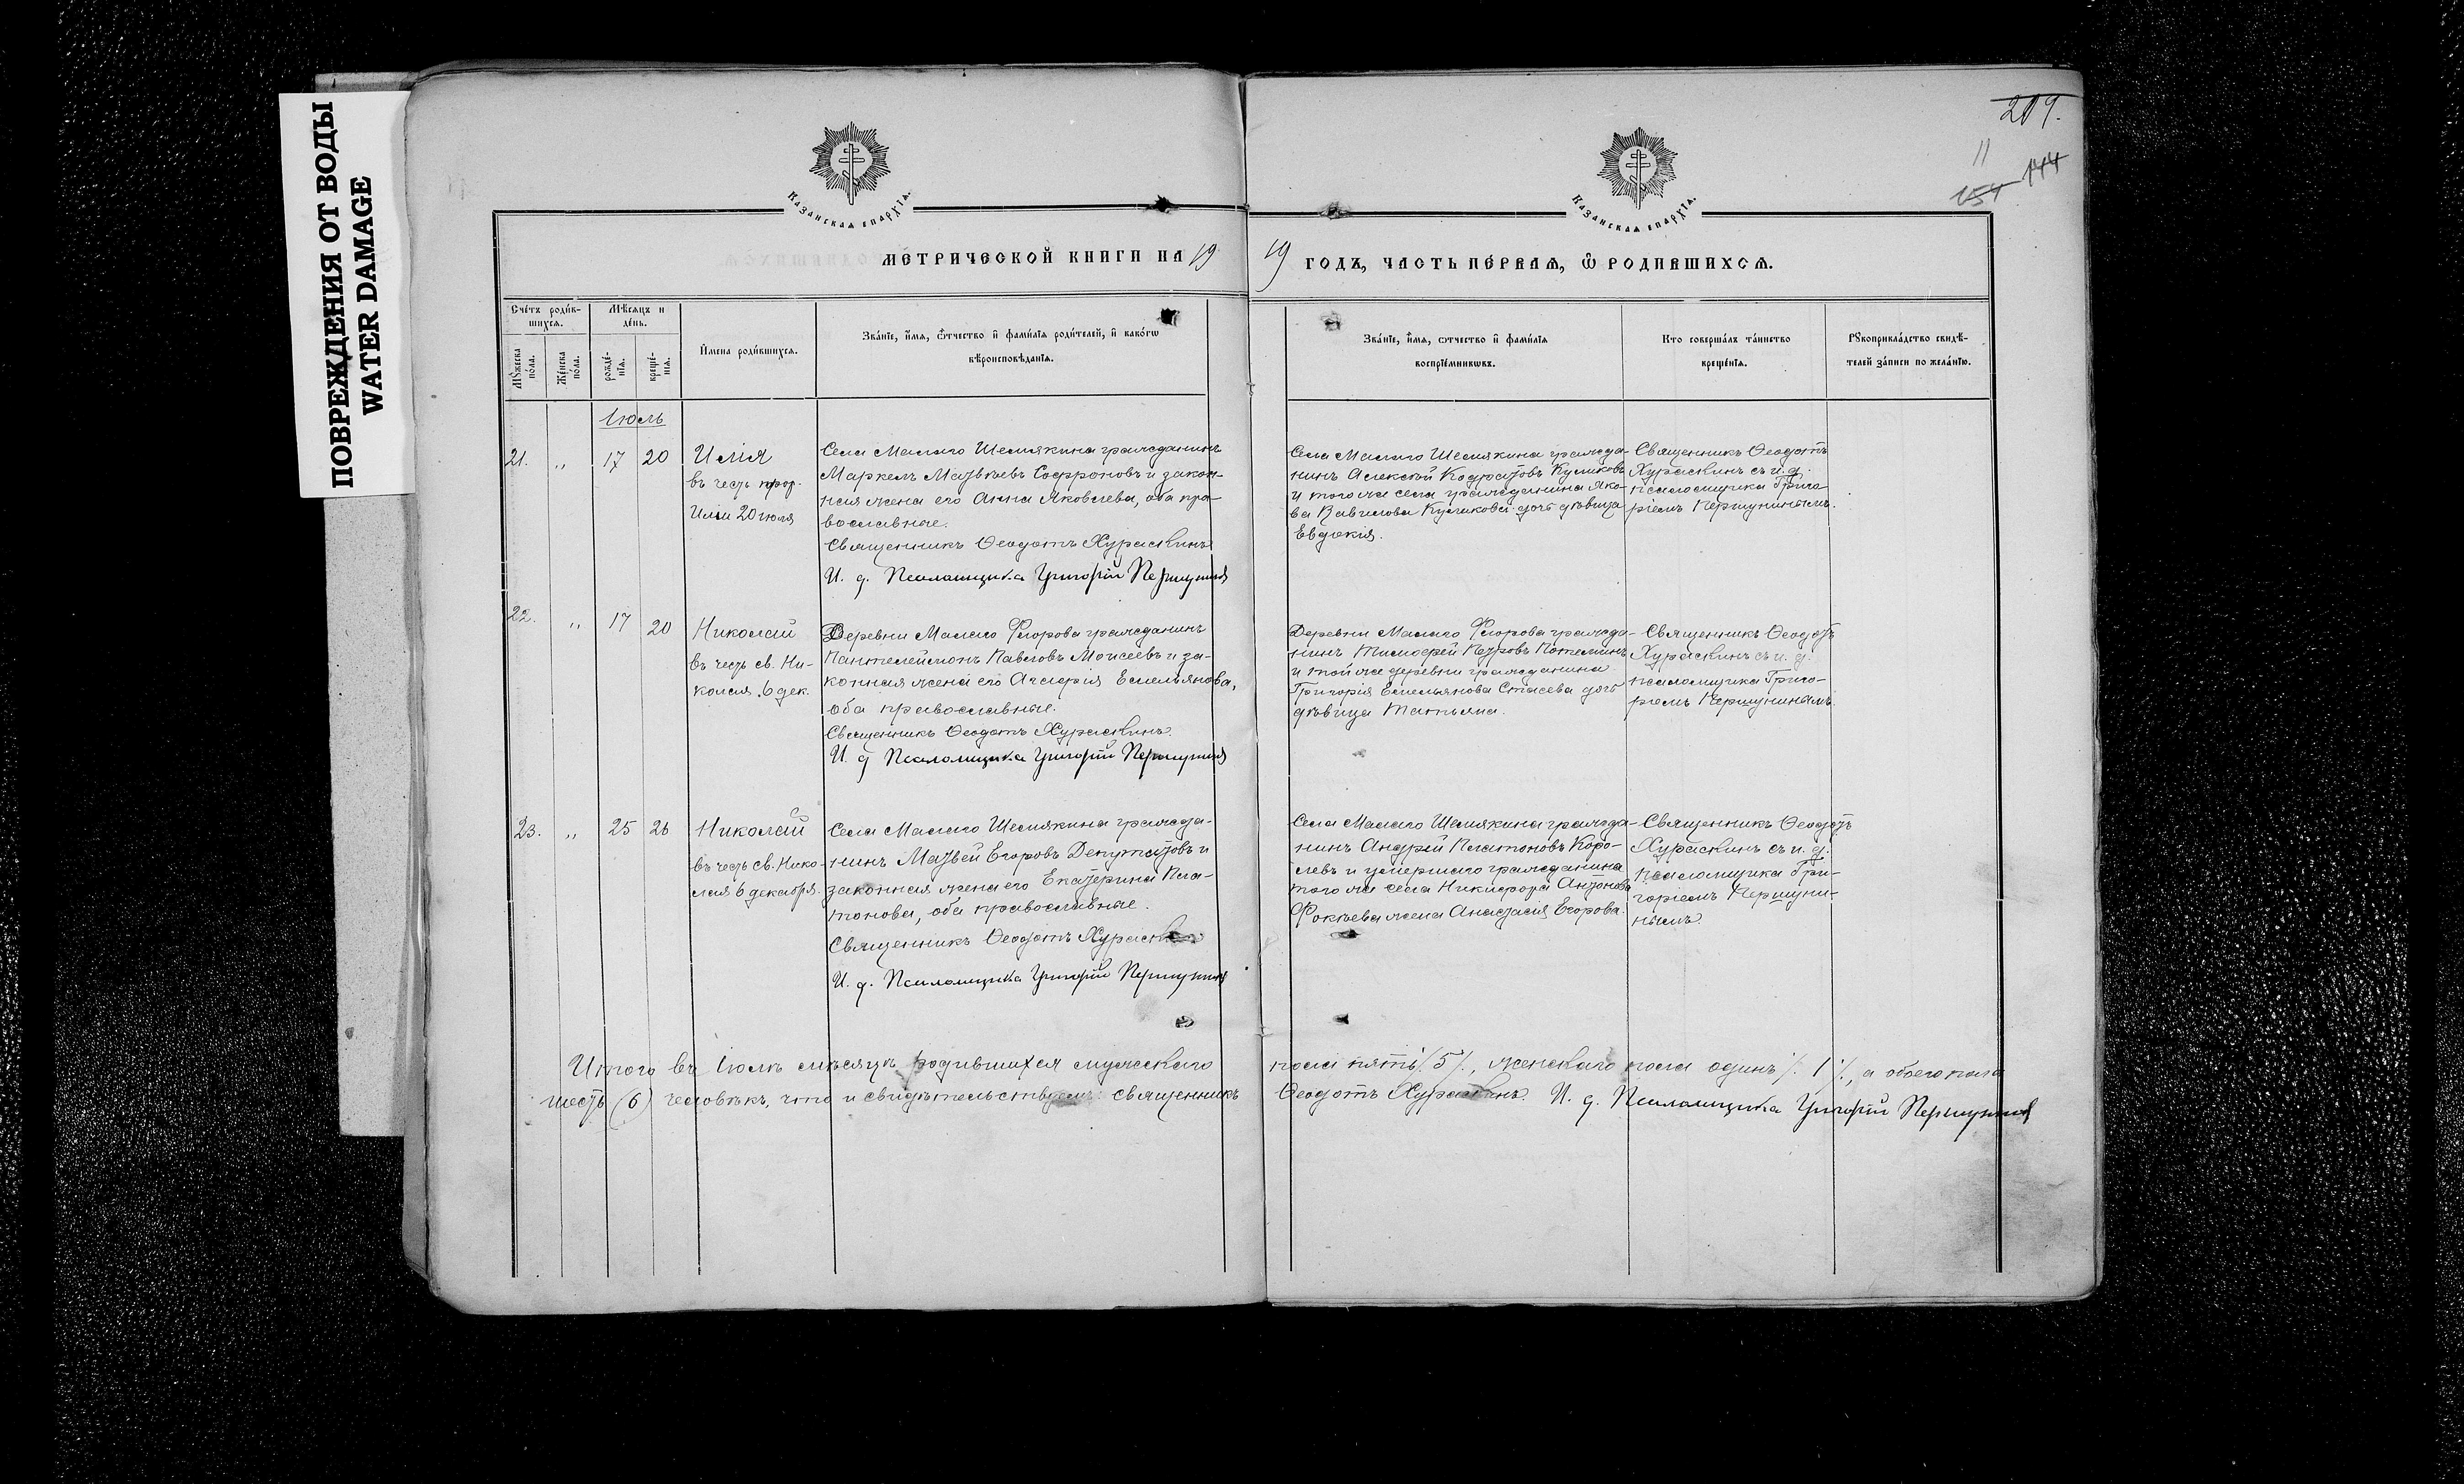 ПОВРЕЖДЕНИЯ ОТ ВОДЫ
WATER DAMAGE
209.
11
154 144
Казанская епархїя.
Казанская епархїя.
МЕТРИЧЕСКОЙ КНИГИ НА 19
19 ГОДЪ, ЧАСТЬ ПЕРВАЯ, Ѡ РОДИВШИХСЯ.
Счетъ родив-
шихся.
Мѣсяцъ и
день.
Мужеска
пола.
Женска
пола.
рожде-
нїя.
креще-
нїя.
Имена родившихся.
Званїе, имя, ѿтчество и фамилїя родителей, и какогѡ
вѣроисповѣданїя.
Званїе, имя, ѿтчество и фамилїя
воспрїемникѡвъ.
Кто совершалъ таинство
крещенїя.
Рукоприкладство свидѣ-
телей записи по желанїю.
Іюль
21. " 17 20
Илія
въ честь прор.
Иліи 20 июля
Села Малаго Шемякина гражданинъ
Маркелъ Матвѣевъ Софроновъ и закон-
ная жена его Анна Яковлева, оба пра-
вославные.
Священникъ Ѳеодотъ Хураскинъ
И. д. Псаломщика Григорій Першунинъ
Села Малаго Шемякина гражда-
нинъ Алексѣй Кодратовъ Куликовъ
и того же села гражданина Яко-
ва Вавилова Куликова дочь дѣвица
Евдокія.
Священникъ Ѳеодотъ
Хураскинъ съ и. д.
псаломщика Григо-
ріемъ Першунинымъ.
22. " 17 20
Николай
въ честь св. Ни-
колая 6 дек.
Деревни Малаго Ѳедорова гражданинъ
Пантелеймонъ Павловъ Моисеевъ и за-
конная жена его Емельянова,
оба православные.
Священникъ Ѳеодотъ Хураскинъ.
И. д Псаломщика Григорій Першунинъ
Деревни Малаго гражда-
нинъ Тимофей Петровъ
и той же деревни гражданина
Григорія Емельянова дочь
дѣвица Татьяна.
Священникъ Ѳеодотъ
Хураскинъ съ и. д.
псаломщика Григо-
ріемъ Першунинымъ.
23. " 25 26
Николай
въ честь св. Нико-
лая 6 декабря.
Села Малаго Шемякина гражда-
нинъ Матвей Егоровъ Депутатовъ и
законная жена его Екатерина Пла-
тонова, оба православные.
Священникъ Ѳеодотъ Хураскинъ
И. д. Псаломщика Григорій Першунинъ
Села Малаго Шемякина гражда-
нинъ Андрей Платоновъ Коро-
левъ и умершаго гражданина
того же села Никифора Антонова
Фокѣева жена Анастасія Егорова.
Священникъ Ѳеодотъ
Хураскинъ съ и. д.
псаломщика Гри-
горіемъ Першуни-
нымъ
Итого въ Іюлѣ мѣсяцѣ родившихся мужескаго пола пять /. 5 /., женскаго пола одинъ /. 1 /., а обоего пола
шесть (6) человѣкъ, что и свидѣтельствуемъ: священникъ Ѳеодотъ Хураскинъ. И. д. Псаломщика Григорій Першунинъ